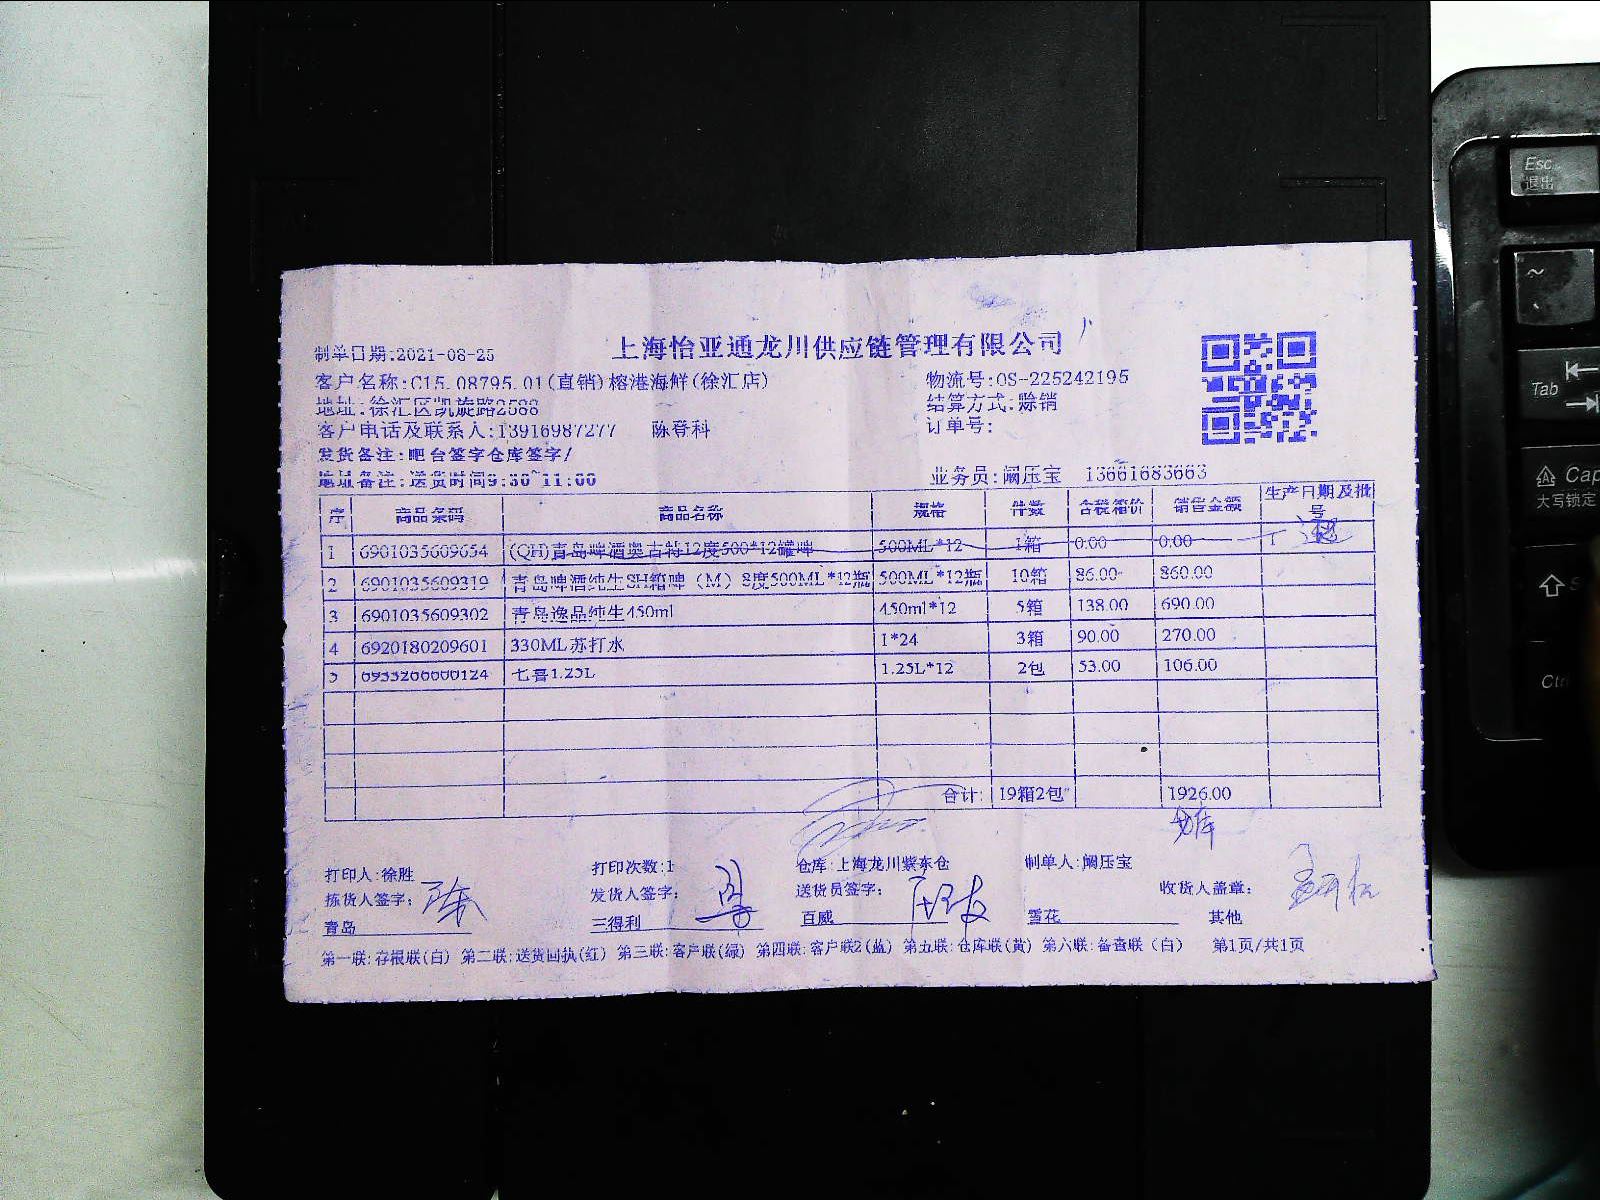 上海怡亚通龙川供应链管理有限公司
制单日期:2021-08-25
客户名称:C15.08795.01(直销)榕港海鲜(徐汇店)
物流号:OS-225242195
地址:徐汇区凯旋路2588
结算方式:赊销
客户电话及联系人:13916987277 陈登科
订单号:
发货备注:吧台签字仓库签字/
地址备注:送货时间9:30~11:00
业务员:阚压宝 13661683663
序 商品条码 商品名称 规格 件数 含税箱价 销售金额 生产日期及批号
1 6901035609654 (QH)青岛啤酒奥古特12度500*12罐啤 500ML*12 1箱 0.00 0.00
2 6901035609319 青岛啤酒纯生SH箱啤（M）8度500ML*12瓶 500ML*12瓶 10箱 86.00 860.00
3 6901035609302 青岛逸品纯生450ml 450ml*12 5箱 138.00 690.00
4 6920180209601 330ML苏打水 1*24 3箱 90.00 270.00
5 6933266600124 七喜1.25L 1.25L*12 2包 53.00 106.00
合计: 19箱2包 1926.00
打印人:徐胜 打印次数:1 仓库:上海龙川紫东仓 制单人:阚压宝
拣货人签字: 发货人签字: 送货员签字: 收货人盖章:
青岛 三得利 百威 雪花 其他
第一联:存根联(白) 第二联:送货回执(红) 第三联:客户联(绿) 第四联:客户联2(蓝) 第五联:仓库联(黄) 第六联:备查联(白) 第1页/共1页
Esc
退出
~
Tab
Cap
大写锁定
S
Ctr